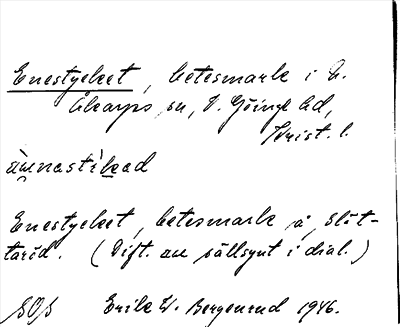 Enestycket, betesmark i N.
Åkarps sn, V. Göinge hd,
Krist. l.
Enestycket, betesmark på Slät-
taröd. (Dift. au sällsynt i dial.)
SOS Erik W. Bergenrud 1946.